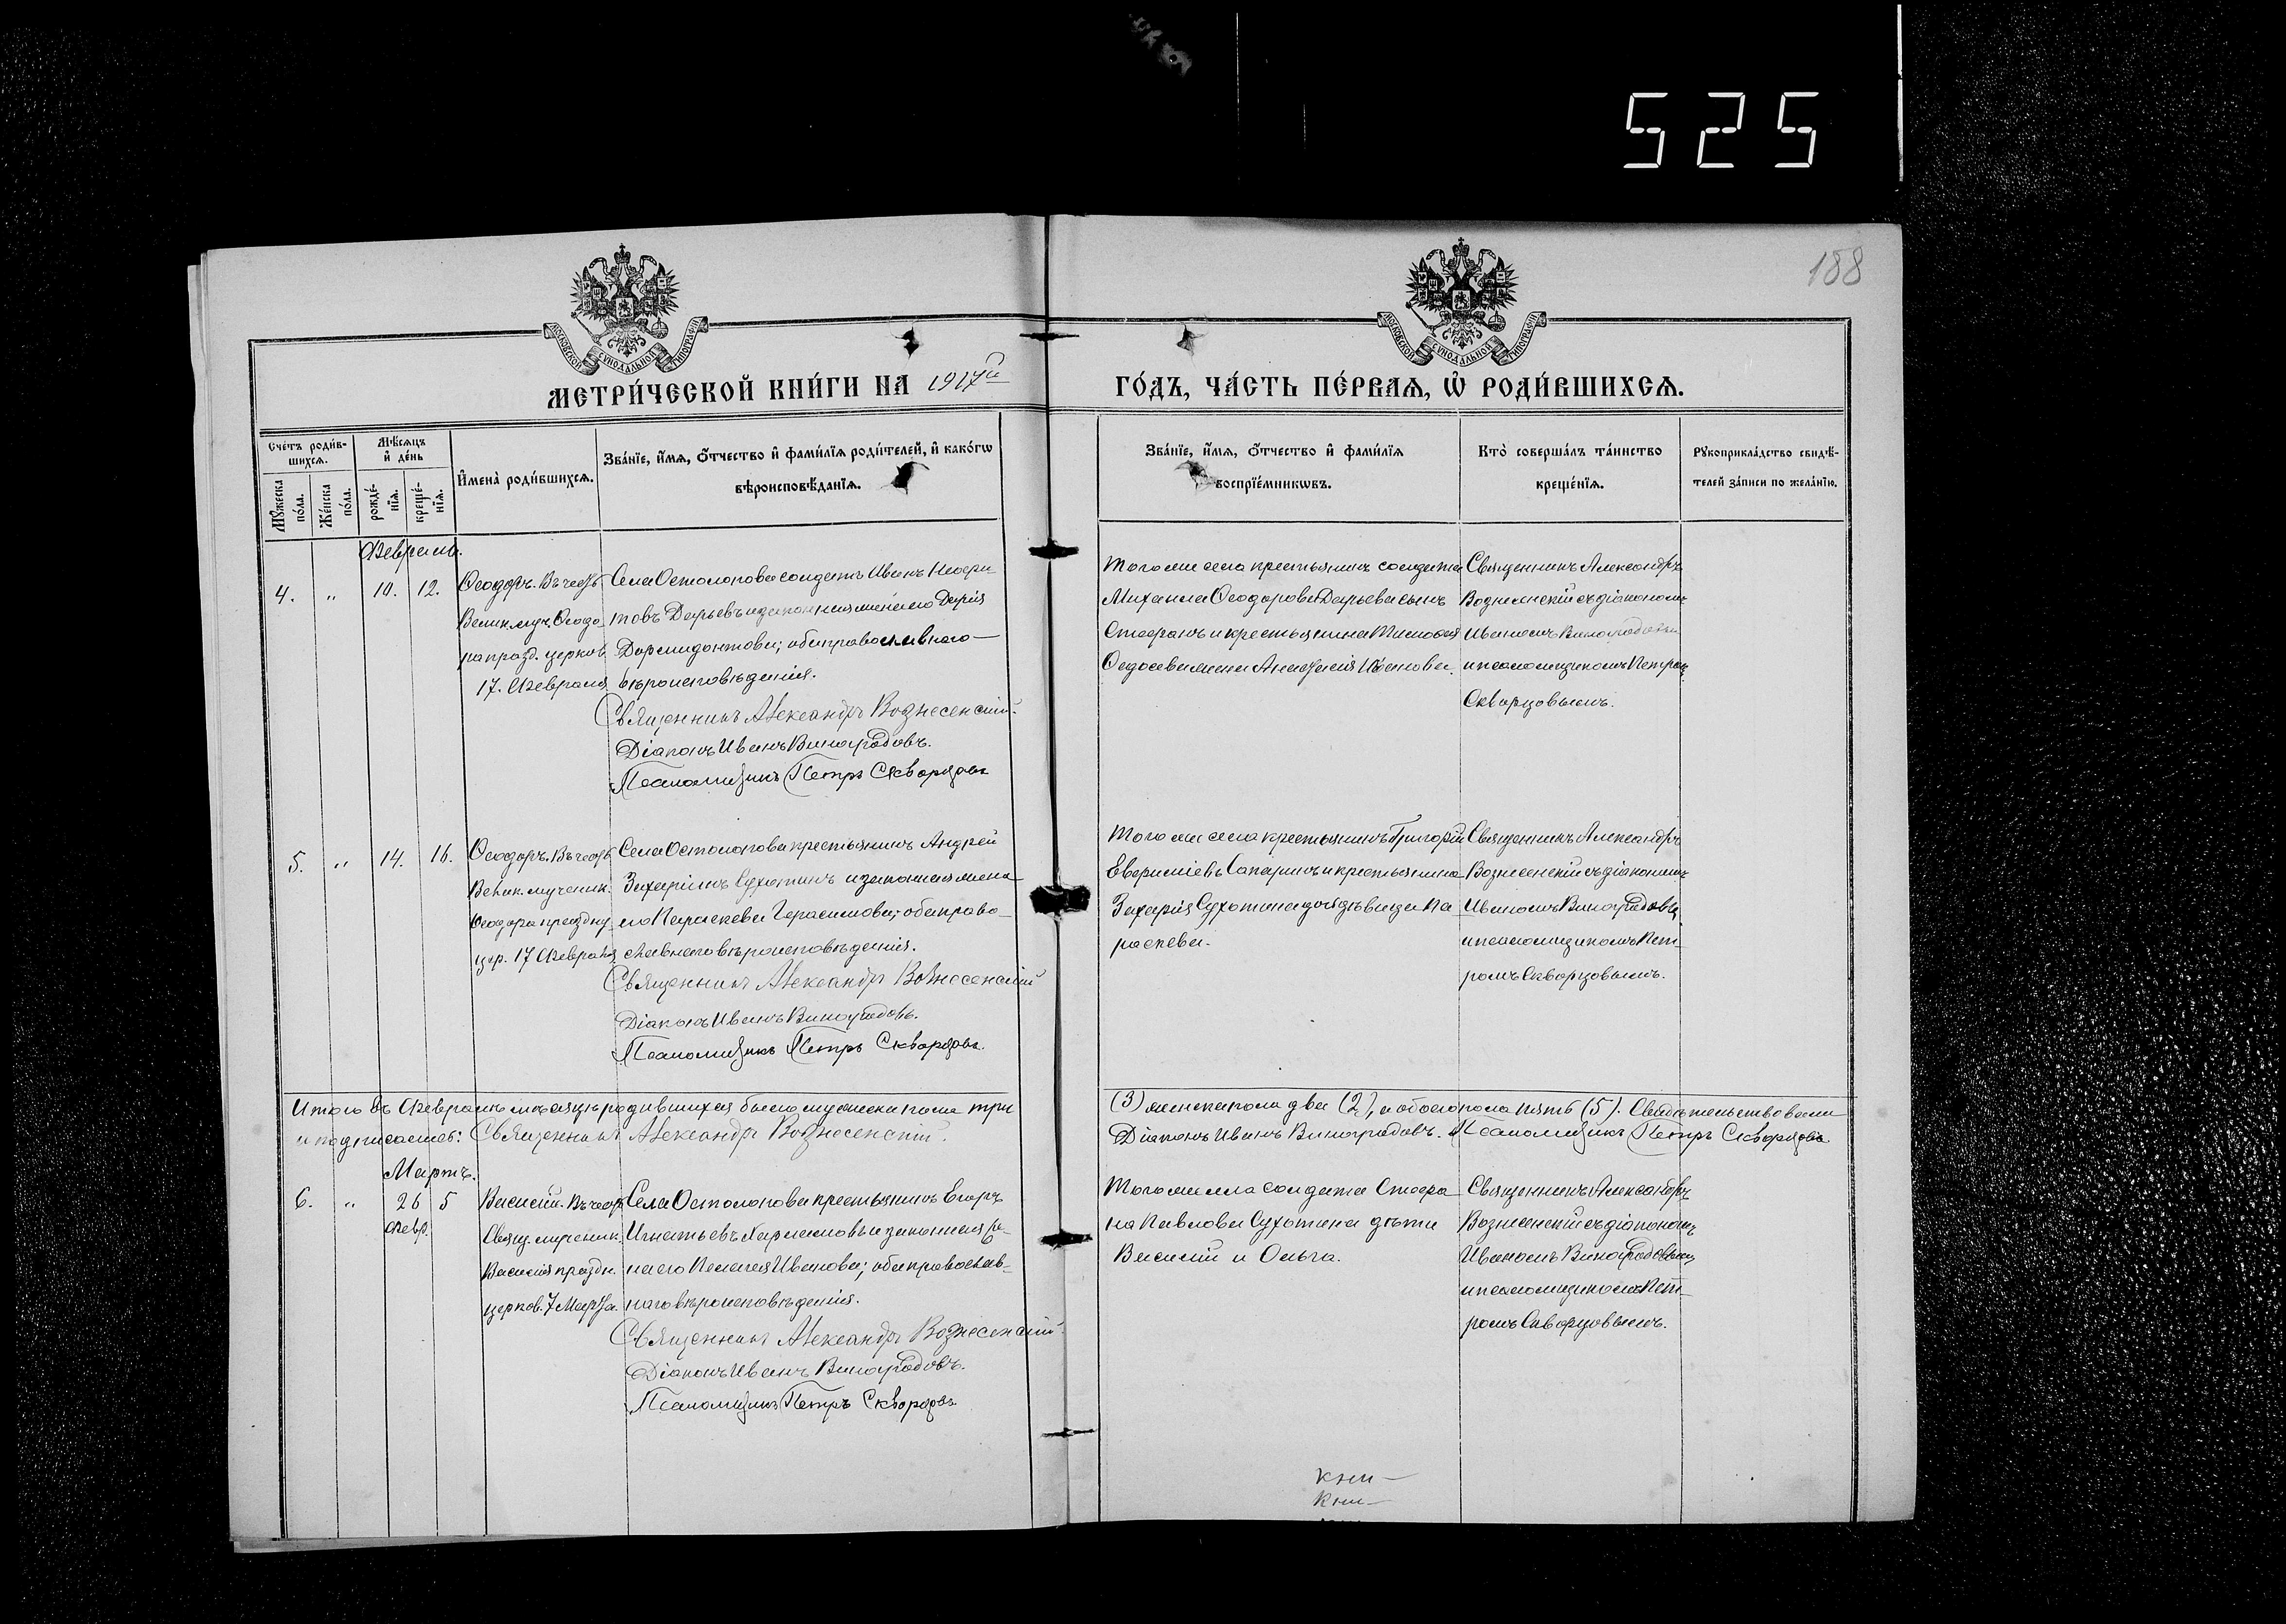 525
188
МОСКОВСКОЙ СУНОДАЛЬНОЙ ТИПОГРАФІИ
МОСКОВСКОЙ СУНОДАЛЬНОЙ ТИПОГРАФІИ
МЕТРИ́ЧЕСКОЙ КНИ́ГИ НА 1917й
ГО́ДЪ, ЧА́СТЬ ПЕ́РВАѦ, Ѡ҆ РОДИ́ВШИХСѦ.
Сче́тъ роди́в-
шихсѧ.
Мѣ́сѧцъ
и҆ де́нь
Мꙋ́жеска
по́ла.
Же́нска
по́ла.
рожде́-
нїѧ.
креще́-
нїѧ.
И҆мена̀ роди́вшихсѧ.
Зва́нїе, и҆́мѧ, ѻ҆́тчество и҆ фами́лїѧ роди́телей, и҆ како́гѡ
вѣроисповѣ́данїѧ.
Зва́нїе, и҆́мѧ, ѻ҆́тчество и҆ фами́лїѧ
воспрїе́мникѡвъ.
Кто̀ соверша́лъ та́инство
креще́нїѧ.
Рꙋкоприкла́дство свидѣ́-
телей за́писи по жела́нїю.
Февраль.
4. " 10. 12.
Ѳеодоръ. Въ честь
Великмуч. Ѳеодо
ра празд. церков
17. Февраля
Села Остолопова солдатъ Иванъ
товъ Дарьевъ и законная жена его Дарія
Дормидонтова; оба православнаго
вѣроисповѣданія.
Священникъ Александръ Вознесенскій.
Діаконъ Иванъ Виноградовъ.
Псаломщикъ Петръ Скворцовъ
Того же села крестьянинъ солдата
Михаила Ѳеодорова Дарьева сынъ
Стефанъ и крестьянина Тимоѳея
Ѳедосева жена Анастасія Иванова.
Священникъ Александръ
Вознесенскій съ діакономъ
Иваномъ Виноградовы
и псаломщикомъ Петромъ
Скворцовымъ.
5. " 14. 16.
Ѳеодоръ. Въ честь
Велик. мученик.
Ѳеодора праздну
цер. 17 Февраля
Села Остолопова крестьянинъ Андрей
Захаріинъ Сухотинъ и законная жена
его Параскева Герасимова; оба право-
славнаго вѣроисповѣданія.
Священникъ Александръ Вознесенскій
Діаконъ Иванъ Виноградовъ.
Псаломщикъ Петръ Скворцовъ.
Того же села крестьянинъ Григорій
Евфиміевъ Сапаринъ и крестьянина
Захарія Сухотина дочь дѣвица Па
раскева.
Священникъ Александръ
Вознесенскій съ діакономъ
Иваномъ Виноградовы
и псаломщикомъ Пет-
ромъ Скворцовымъ.
Итого въ Февралѣ мѣсяцѣ родившихся было мужеска пола три
(3) женска пола два (2), а обоего пола пять (5). Свидѣтельствовали
и подписались: Священникъ Александръ Вознесенскій.
Діаконъ Иванъ Виноградовъ. Псаломщикъ Петръ Скворцовъ.
Мартъ.
6. " 26 5
Февр.
Василій. Въ честь
Свящ. мученик.
Василія праздн.
церков. 7 Марта.
Села Остолопова крестьянинъ Егоръ
Игнатьевъ и законная же-
на его Пелагея Иванова; оба православ-
наго вѣроисповѣданія.
Священникъ Александръ Вознесенскій
Діаконъ Иванъ Виноградовъ.
Псаломщикъ Петръ Скворцовъ
Того же села солдата Стефа
на Павлова Сухотина дѣти
Василій и Ольга.
Священникъ Александръ
Вознесенскій съ діакономъ
Иваномъ Виноградовымъ
и псаломщикомъ Пет-
ромъ Скворцовымъ.
кни-
кни-